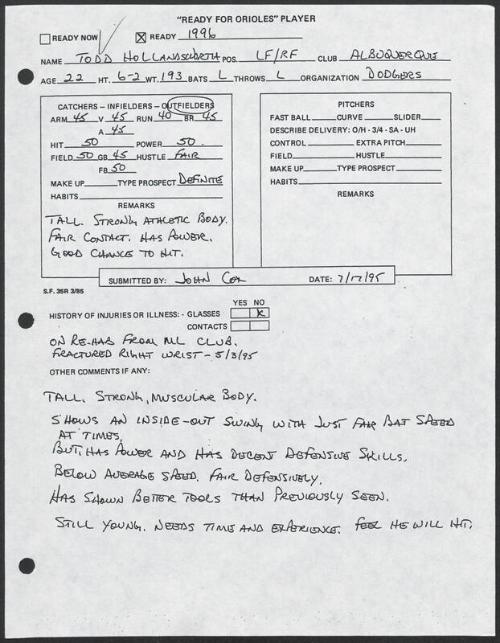 "READY FOR ORIOLES" PLAYER
READY NOW X READY 1996
NAME TODD HOLLANDSWORTH POS. LF/RF CLUB ALBUQUERQUE
AGE 22 HT. 6-2 WT. 193 BATS L THROWS L ORGANIZATION DODGERS
CATCHERS - INFIELDERS - OUTFIELDERS
ARM 45 V 45 RUN 40 BR 45
A 45
HIT 50 POWER 50
FIELD 50 GB 45 HUSTLE FAIR
FB 50
MAKE UP TYPE PROSPECT DEFINITE
HABITS
REMARKS
TALL. STRONG ATHLETIC BODY.
FAIR CONTACT. HAS POWER.
GOOD CHANCE TO HIT.
PITCHERS
FAST BALL CURVE SLIDER
DESCRIBE DELIVERY: O/H - 3/4 - SA - UH
CONTROL EXTRA PITCH
FIELD HUSTLE
MAKE UP TYPE PROSPECT
HABITS
REMARKS
SUBMITTED BY: JOHN COX DATE: 7/17/95
S.F. 35R 3/85
YES NO
HISTORY OF INJURIES OR ILLNESS: - GLASSES X
CONTACTS
ON RE-HAB FROM ML CLUB.
FRACTURED RIGHT WRIST - 5/3/95
OTHER COMMENTS IF ANY:
TALL. STRONG, MUSCULAR BODY.
SHOWS AN INSIDE-OUT SWING WITH JUST FAIR BAT SPEED
AT TIMES.
BUT, HAS POWER AND HAS DECENT DEFENSIVE SKILLS.
BELOW AVERAGE SPEED. FAIR DEFENSIVELY.
HAS SHOWN BETTER TOOLS THAN PREVIOUSLY SEEN.
STILL YOUNG. NEEDS TIME AND EXPERIENCE. FEEL HE WILL HIT.